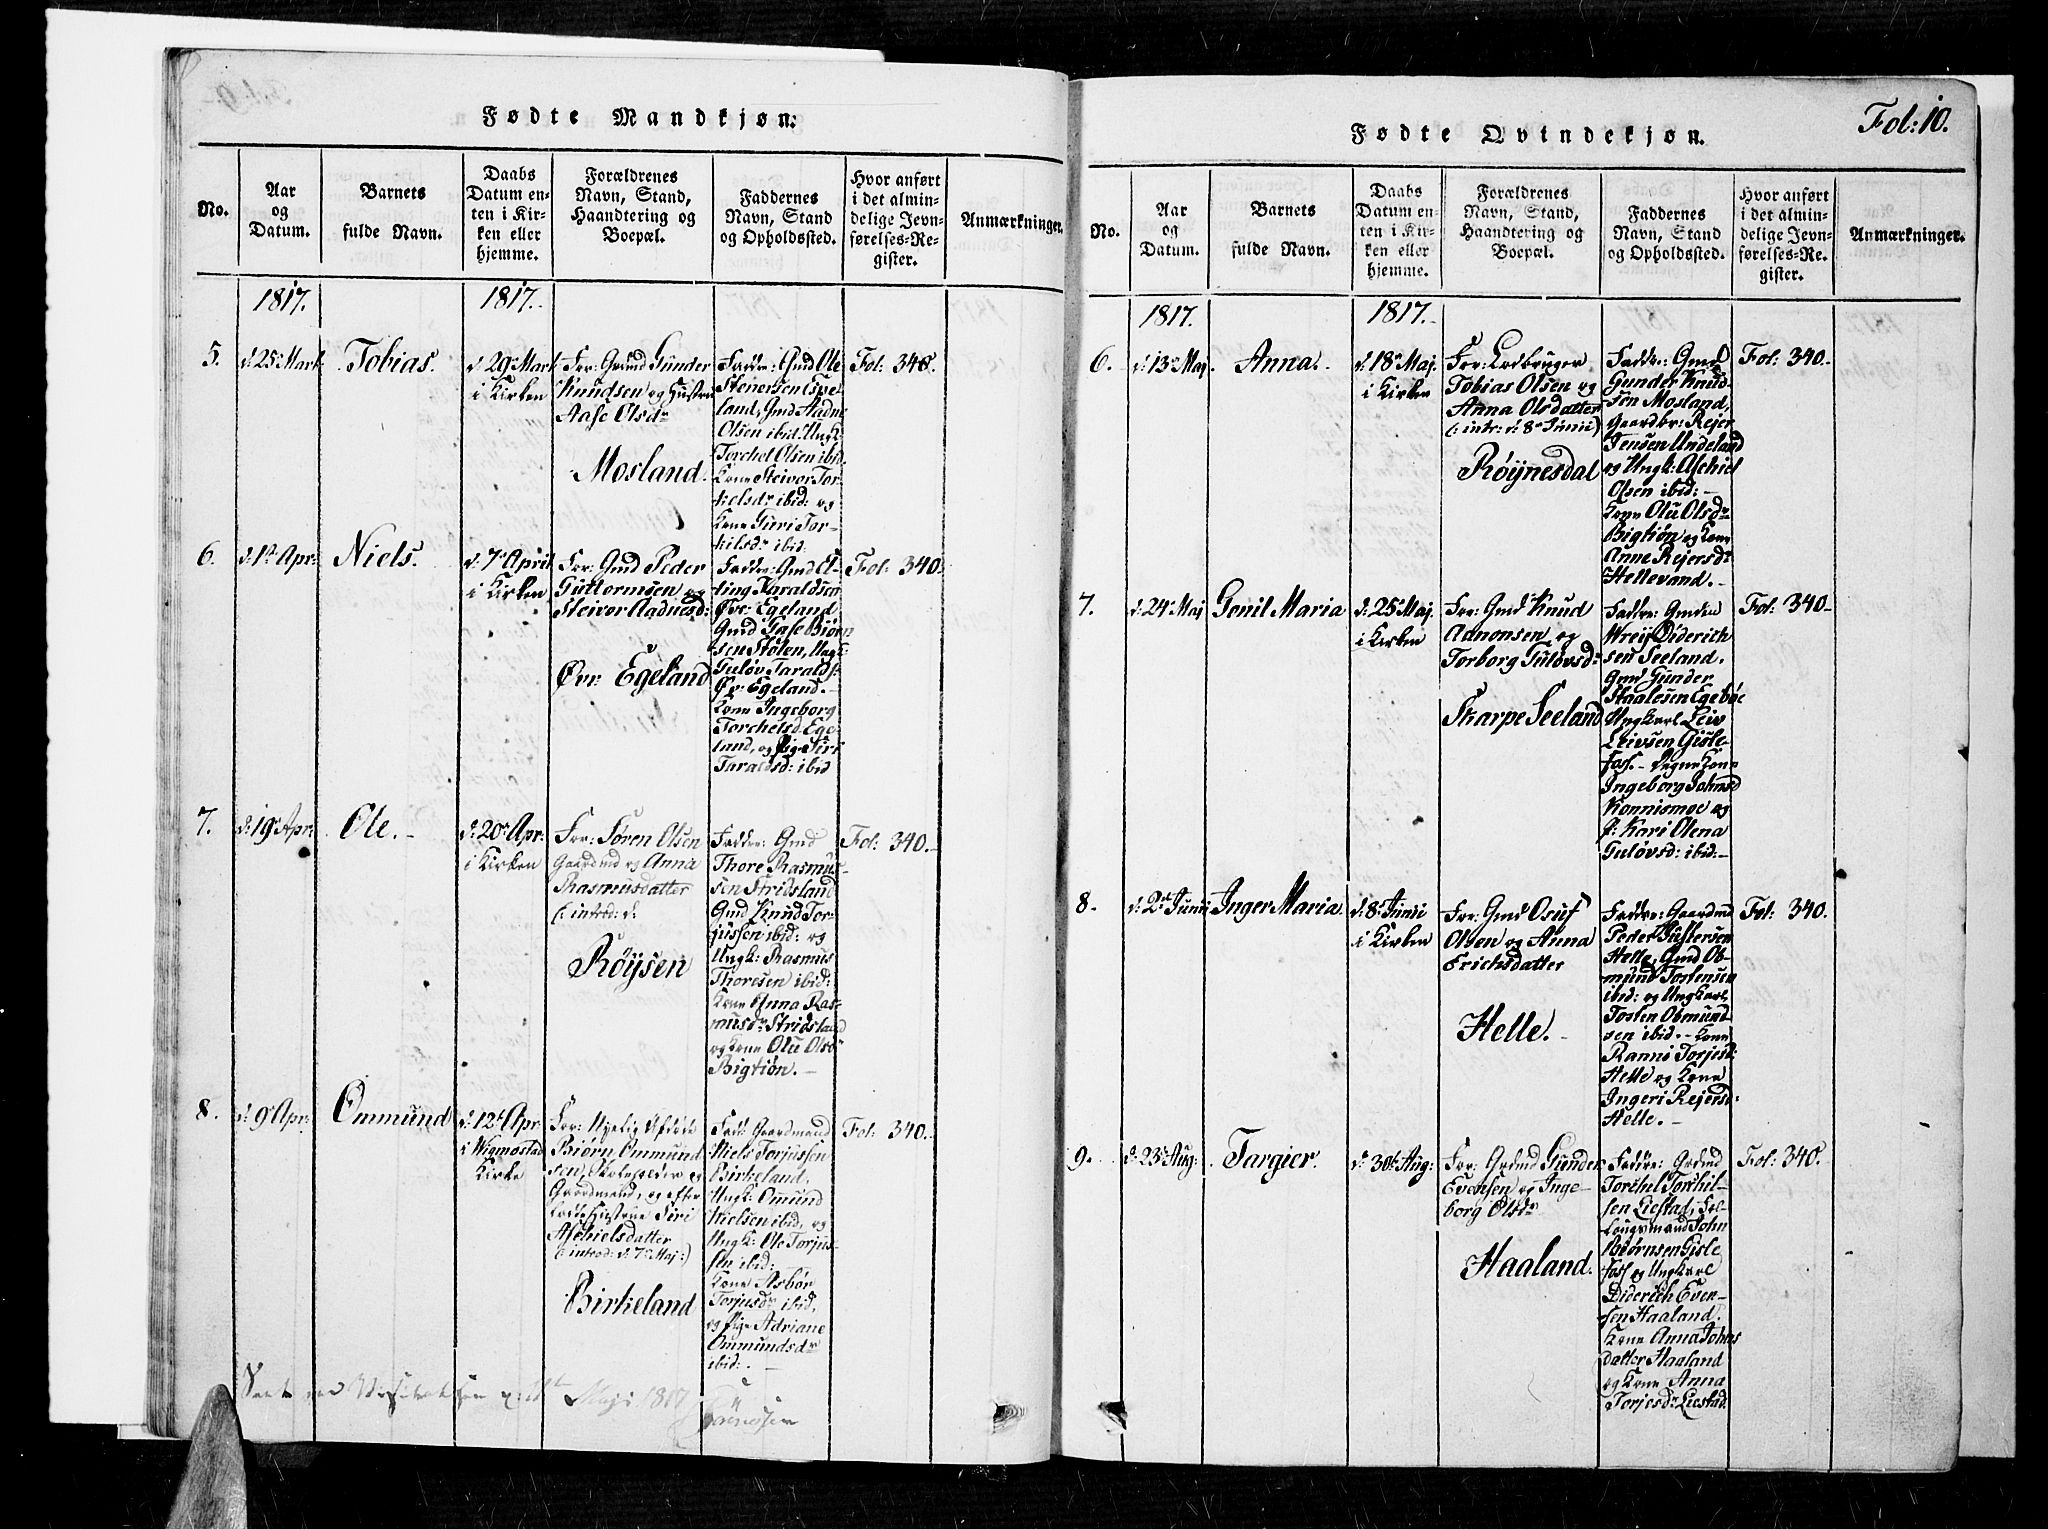 Fødte Mandkjøn:
No.
Aar
og
Datum.
Barnets
fulde Navn.
Daabs
Datum en-
ten i Kir-
ken eller
hjemme.
Forældrenes
Navn, Stand,
Haandtering og
Boepæl.
Faddernes
Navn, Stand
og Opholdssted.
Hvor anført
i det almin-
delige Jevn-
førelses-Re-
gister.
Anmærkninger.
1817.
1817.
5.
d: 25 Mart
Tobias.
d: 29 Mart
i Kirken
For: Grmd Gunder
Knudsen og Hustru
Aase Olsdr
Mosland.
Faddre: Gmd Ole
Stenersen Eve-
land, Gmd Audne
Olsen ibid: Ungk:
Torchel Olsen ibid.
Kone Steivor Tor-
kelsdr ibid: og
Kone Guri Tor-
kilsdr ibid:
Fol: 340.
6.
d: 1 Apr:
Niels.
d: 7 April
i Kirken
For: Gmd Peder
Guttormsen og
Steivor Aadnesd:
Øvr: Egeland
Faddre: Gmd El-
ling Taraldsen
Øvr: Egeland
Gmd Tase Biørn
sen Stølen, Ungk:
Guløv Taralds:
Øv: Egeland.-
Kone Ingeborg
Torchelsd Ege-
land, og Pige Siri
Taraldsd: ibid
Fol: 340.
7.
d: 19 Apr:
Ole.-
d: 20 Apr:
i Kirken
For: Søren Olsen
Gaardmd og Anna
Rasmusdatter
(: introd: d:
Røysen
Faddre: Gmd
Thore Rasmus-
sen Stridsland
Gmd Knud Tor-
jussen ibid: og
Ungk: Rasmus
Thoresen ibid:
Kone Anna Ras-
musdr Stridsland
og Kone Olu Olsdr
Bigtiøn.-
Fol: 340.-
8.
d: 9 Apr:
Ommund
d: 12 Apr
i Wigmostad
Kirke
For: Nyelig Afdøde
Biørn Ommund
sen, Skoleholder og
Gaardmand, og efter
ladte Hustrue Siri
Aschielsdatter
(: introd: d: 7 Maj:)
Birkeland
Fadd: Gaardmand
Niels Torjussen
Birkeland.
Ungk: Omund
Nielsen ibid, og
Ungk: Ole Torjus-
sen ibid:
Kone Asbør
Torjusdr ibid,
og Pige Adriane
Ommundsdr
ibid:.-
Fol: 340.-
Seet ved Visitatsen
Maji 1817
Fol: 10.
Fødte Qvindekjøn.
No.
Aar
og
Datum.
Barnets
fulde Navn.
Daabs
Datum en-
ten i Kir-
ken eller
hjemme.
Forældrenes
Navn, Stand,
Haandtering og
Boepæl.
Faddernes
Navn, Stand
og Opholdssted.
Hvor anført
i det almin-
delige Jevn-
førelses-Re-
gister.
Anmærkninger.
1817.
1817.
6.
d: 13 Maj.
Anna.
d: 18 Maj.
i Kirken
For: Lodbruger
Tobias Olsen og
Anna Olsdatter
(: intr: d: 8 Junii)
Røynesdal
Faddre: Gmd
Gunder Knud-
sen Mosland,
Gaardbr: Rejer
Jensen Undeland
og Ungk: Aschiel
Olsen ibid:-
Kone Olu Olsdr
Bigtiøn og Kone
Anne Rejersdr
Hellevand.-
Fol: 340.
7.
d: 24 Maj
Gonil Maria
d: 25 Maj.
i Kirken
For: Gmd Knud
Aanonsen og
Torborg Guløvsd:
Skarpe Seeland
Faddre: Gmden
Wreij Diderich
sen Seeland.
Gmd Gunder
Staalesen Egebøe
Ungkarl Leiv
Leivsen Gisle-
foss.- Degnekone
Ingeborg Johnsd
Konnismoe og
p: Kari Olena
Guløvsd: ibid:-
Fol: 340.-
8.
d: 2 Junii
Inger Maria.
d: 8 Junii
i Kirken
For: Gmd Osuf
Olsen og Anna
Erichsdatter
Helle.-
Faddre: Gaardmd
Peder Gustersen
Helle, Gmd Ob-
mund Tostensen
ibid: og Ungkarl
Tosten Obmund
sen ibid.- Kone
Ranni Torjesd:
Helle og Kone
Ingeri Rejersd:
Helle.-
Fol: 340.
9.
d: 23 Aug:
Targier.
d: 30 Aug:
For: Grdmd Gunder
Evensen og Inge-
borg Olsdr
Haaland.
Faddre: Grdmd
Torchil Torchil-
sen Liestad,
Lougsmand John
Biørnsen Gisle
foss og Ungkarl
Diderich Even-
sen Haaland.
Kone Anna Johns
datter Haaland
og Kone Anna
Torjesdr Liestad.
Fol: 340.